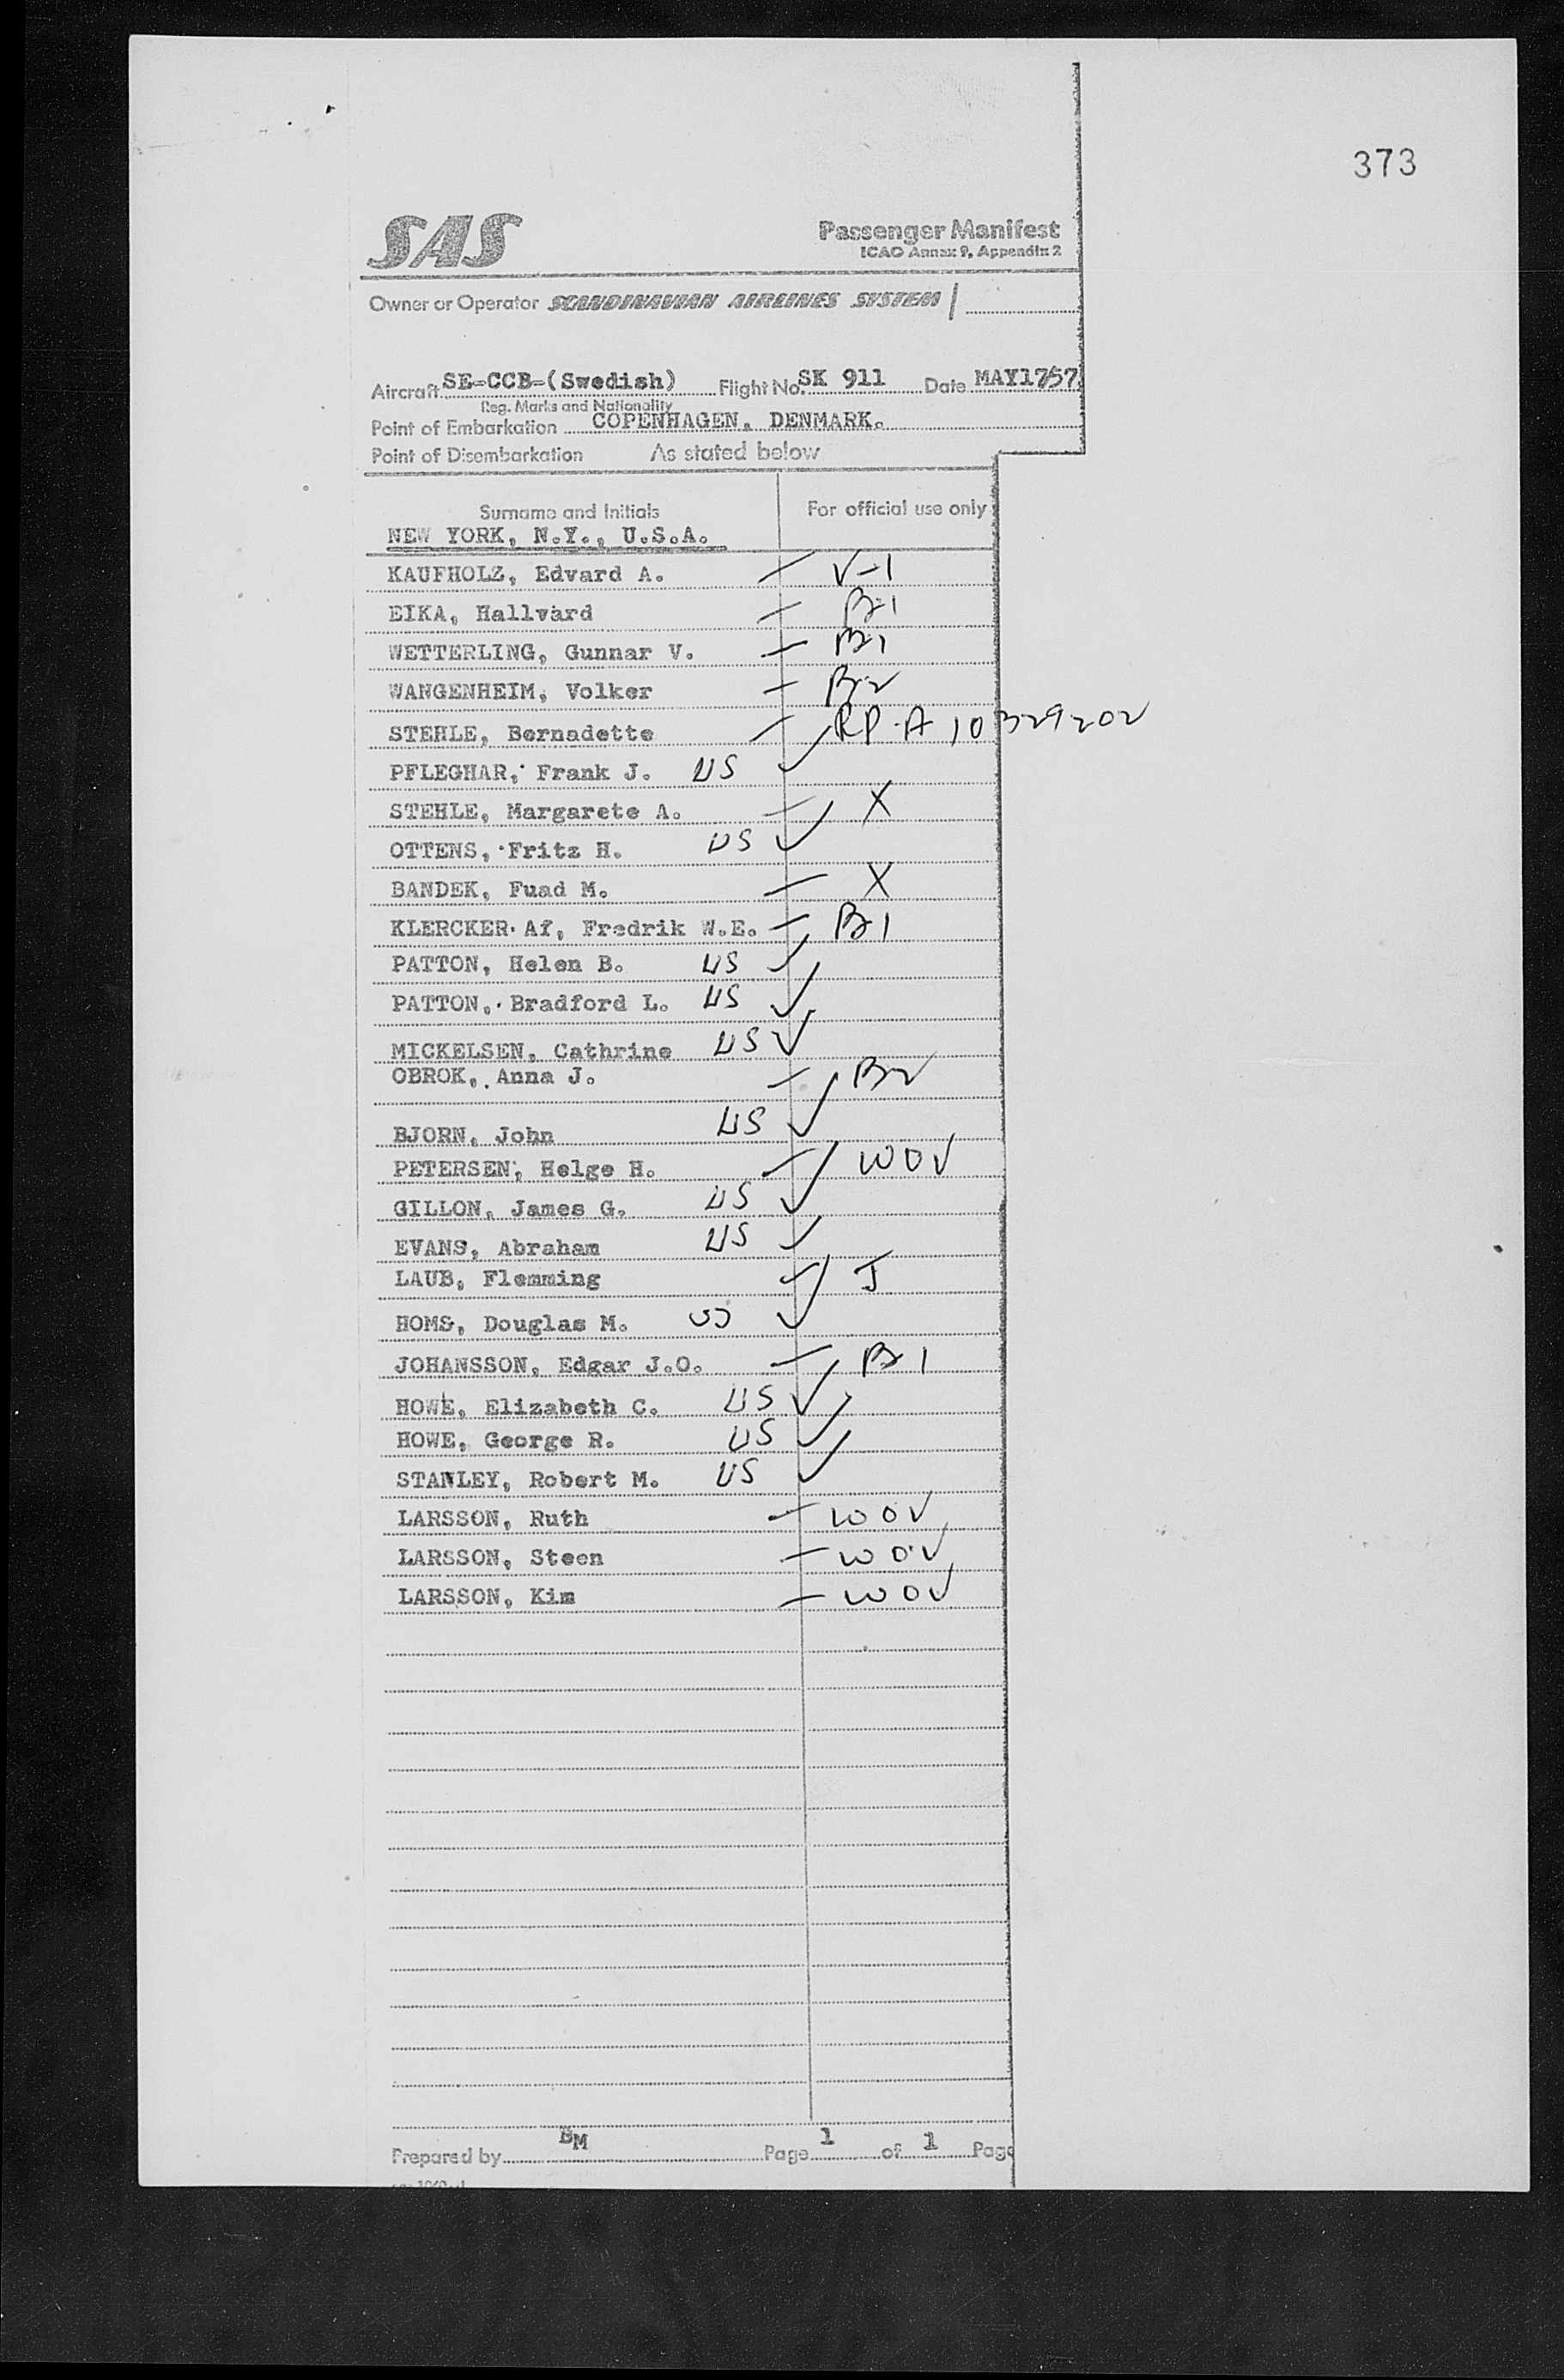 373
SAS
Passenger Manifest
ICAO Annex 9, Appendix 2
Owner or Operator SCANDINAVIAN AIRLINES SYSTEM /
Aircraft SE-CCB-(Swedish) Flight No. SK 911 Date MAY1757
Reg. Marks and Nationality
Point of Embarkation COPENHAGEN, DENMARK.
Point of Disembarkation As stated below
Surname and Initials For official use only
NEW YORK, N.Y., U.S.A.
KAUFHOLZ, Edvard A. — V-1
EIKA, Hallvard — B-1
WETTERLING, Gunnar V. — B-1
WANGENHEIM, Volker — B-2
STEHLE, Bernadette — RP-A 10329202
PFLEGHAR, Frank J. US ✓
STEHLE, Margarete A. — X
OTTENS, Fritz H. US ✓
BANDEK, Fuad M. — X
KLERCKER Af, Fredrik W.E. — B1
PATTON, Helen B. US ✓
PATTON, Bradford L. US ✓
MICKELSEN, Cathrine US ✓
OBROK, Anna J. — B2
BJORN, John US ✓
PETERSEN, Helge H. — WOV
GILLON, James G. US ✓
EVANS, Abraham US ✓
LAUB, Flemming — J
HOMS, Douglas M. US ✓
JOHANSSON, Edgar J.O. — B1
HOWE, Elizabeth C. US ✓
HOWE, George R. US ✓
STANLEY, Robert M. US ✓
LARSSON, Ruth — WOV
LARSSON, Steen — WOV
LARSSON, Kim — WOV
Prepared by BM Page 1 of 1 Page